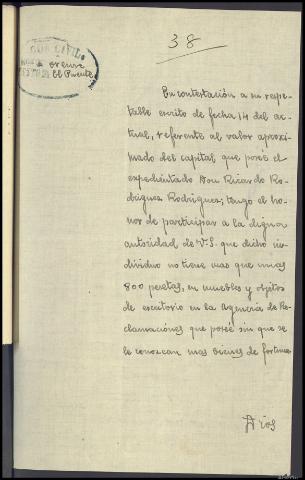 38
GUARDIA CIVIL
Orense
El Puente
En contestación a su respe-
table escrito de fecha 14 del ac-
tual, referente al valor aproxi-
mado del capital que poseé el
expedientado Don Ricardo Ro-
driguez Rodriguez; tengo el ho-
nor de participar a la digna
autoridad de V.S. que dicho in-
dividuo no tiene mas que unas
800 pesetas, en muebles y objetos
de escritorio en la Agencia de Re-
clamaciónes que poseé sin que se
le conozcan mas bienes de fortuna.
Dios